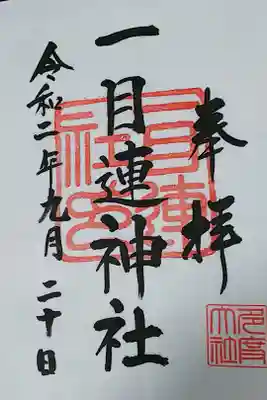 奉拝
一目連神社
令和二年九月二十日
一目連社印
多度大社